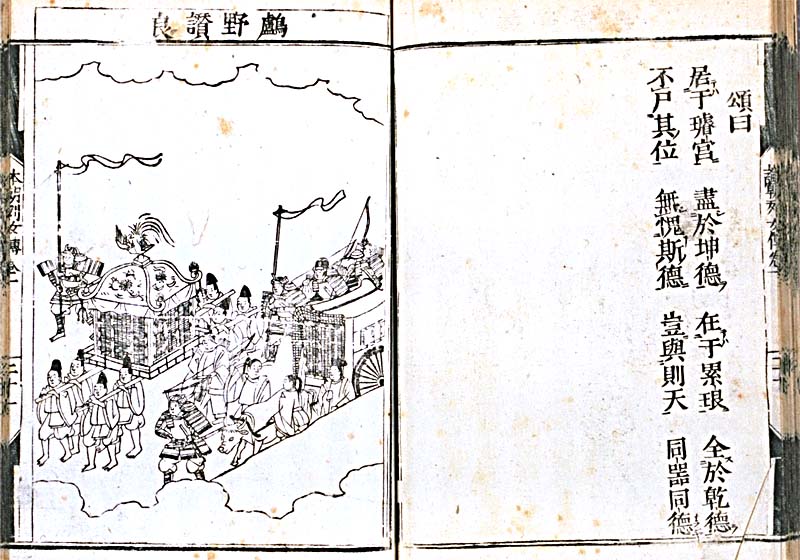 頌曰
居于璿宮 盡於坤德 在于累 全於乾德
不尸其位 無愧斯德 豈與則天 同噐同德
鸕野讚良
本朝列女傳卷一